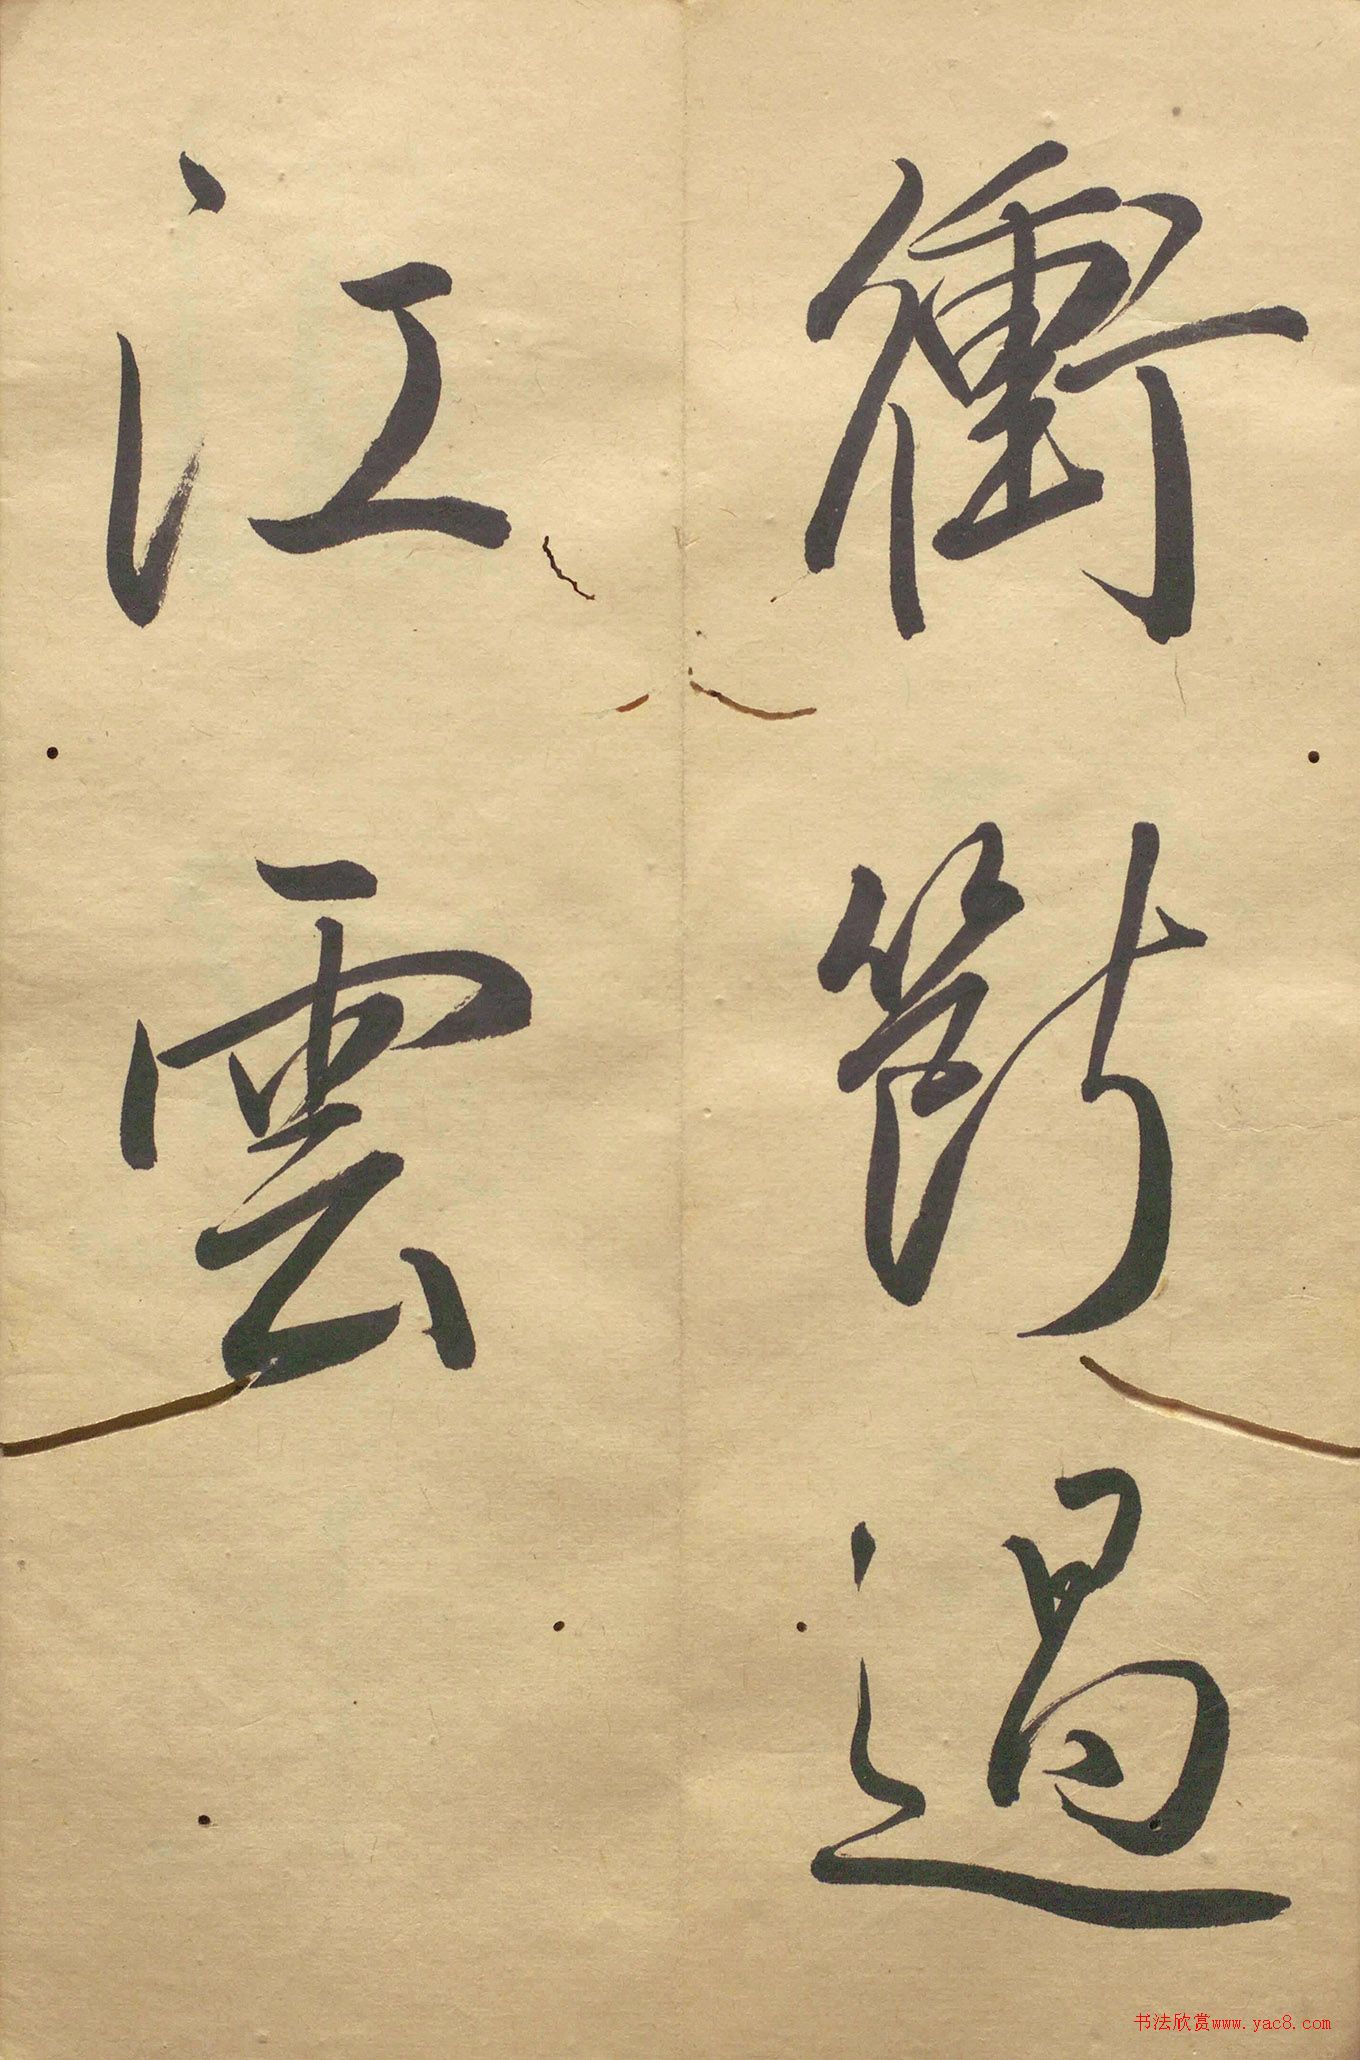 衝斷過
江雲
书法欣赏www.yac8.com